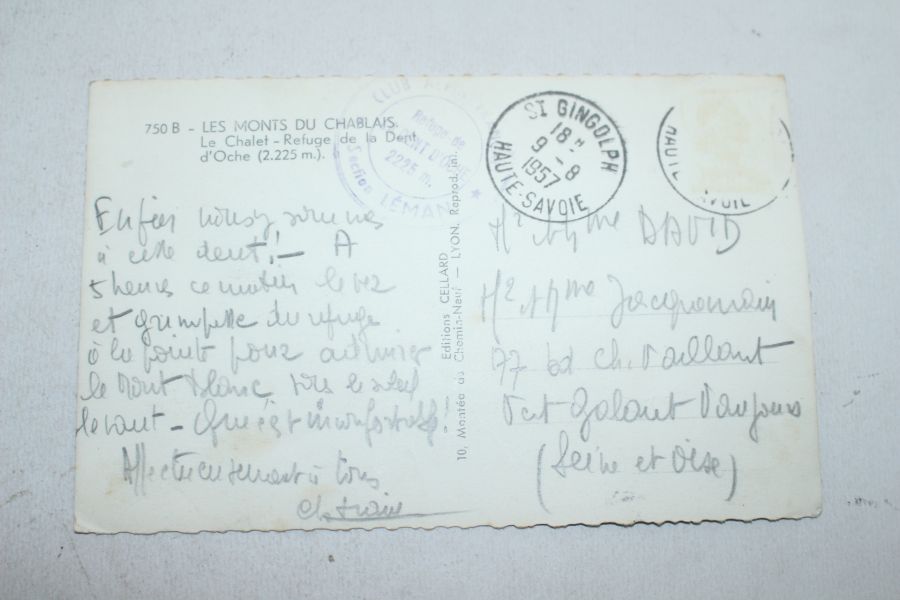 750 B - LES MONTS DU CHABLAIS.
Le Chalet - Refuge de la Dent
d'Oche (2.225 m.).
CLUB
Refuge de
DENT D'OCHE
2225 m.
Section LÉMAN
ST GINGOLPH
18 H
9 - 8
1957
HAUTE-SAVOIE
HAUTE
VOIE
Enfin nous y sommes
à cette dent! — A
5 heures ce matin levez
et grimpette du refuge
à la pointe pour admirer
le Mont Blanc, vers le soleil
levant -
Affectueusement à tous
Editions CELLARD
10, Montée du Chemin-Neuf — LYON. Reprod. in.
Mr et Mme DAVID
Mr et Mme Jacquemain
77 bd Ch. Vaillant
Vert Galant Vaujours
(Seine et Oise)